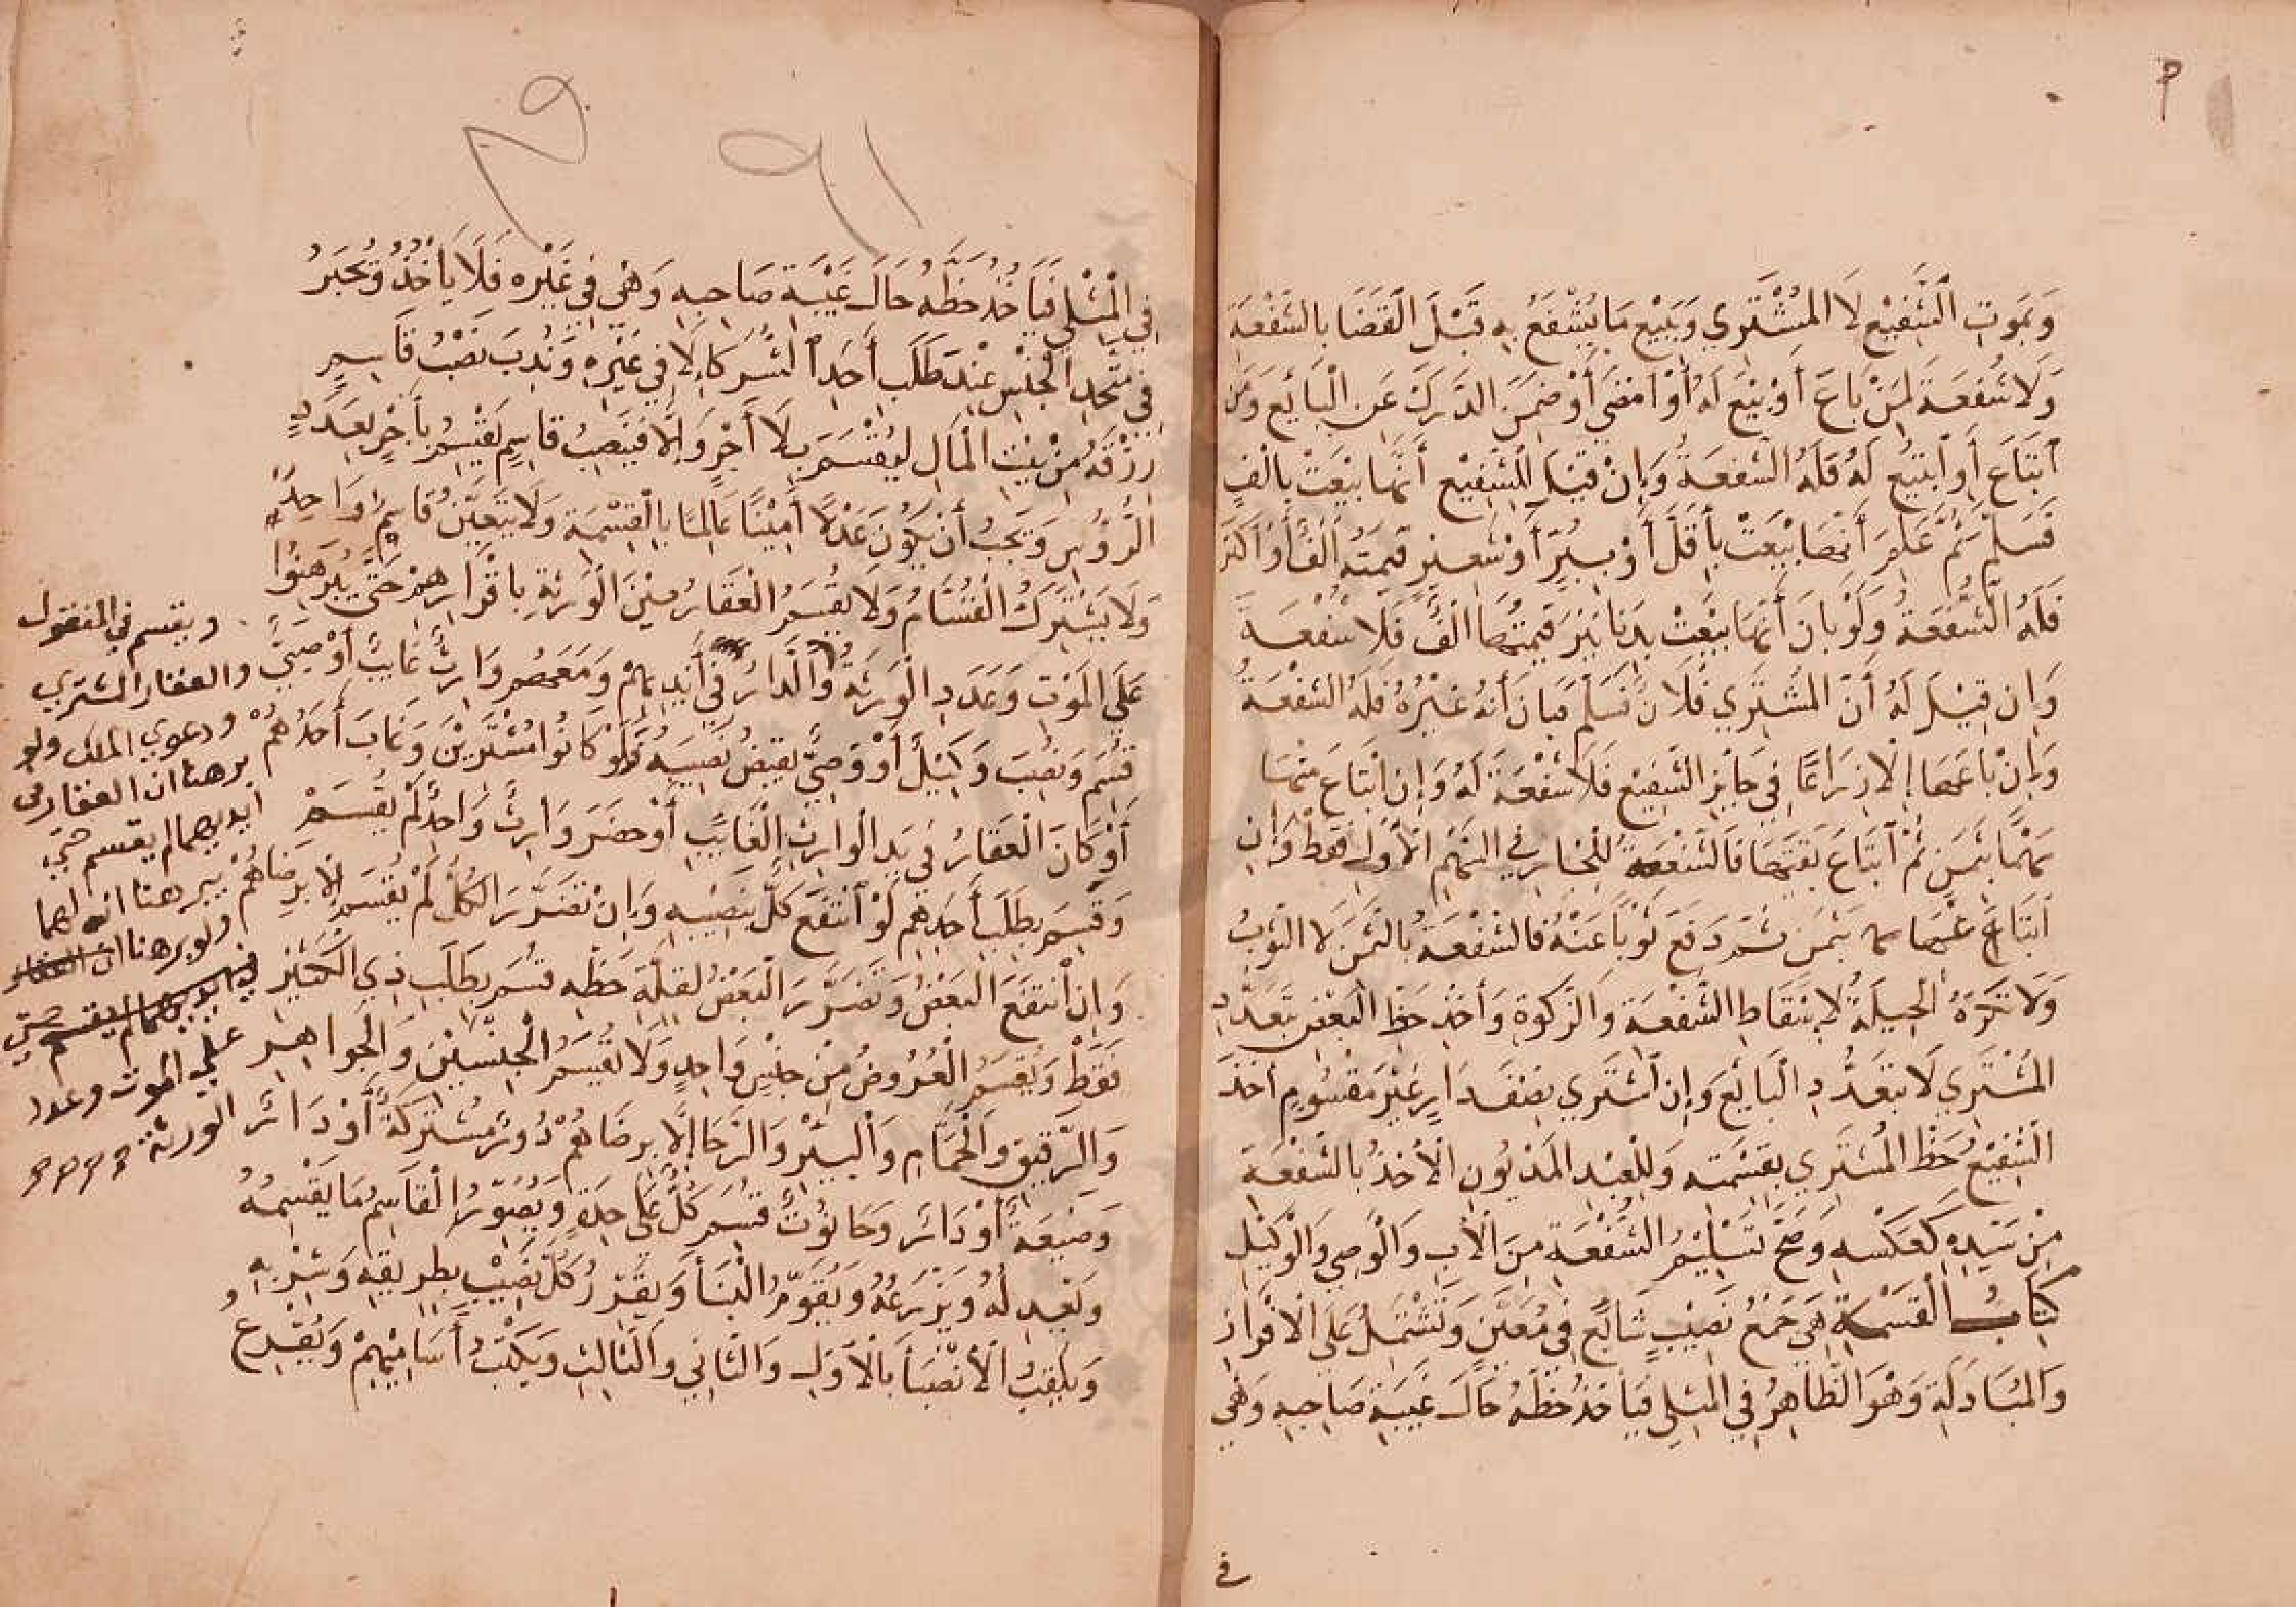 وَبِمَوتِ الشَّفِيْعِ لَا المُشْتَرِي وَبِبَيْعِ مَا يُشْفَعُ بِهِ قَبْلَ الْقَضَا بِالشُّفْعَةِ
وَلَا شُفْعَةَ لِمَنْ بَاعَ أَوْ بِيْعَ لَهُ أَوْ ضَمِنَ الدَّرَكَ عَنِ الْبَائِعِ وَمَنِ
ابْتَاعَ أَوِ ابْتِيْعَ لَهُ فَلَهُ الشُّفْعَةُ وَإِنْ قِيْلَ لِلشَّفِيْعِ أَنَّهَا بِيْعَتْ بِأَلْفٍ
فَسَلَّمَ ثُمَّ عَلِمَ أَنَّهَا بِيْعَتْ بِأَقَلَّ أَوْ بِبُرٍّ أَوْ شَعِيْرٍ قِيْمَتُهُ أَلْفٌ أَوْ أَكْثَرُ
فَلَهُ الشُّفْعَةُ وَلَوْ بَانَ أَنَّهَا بِيْعَتْ بِدَنَانِيْرَ قِيْمَتُهَا أَلْفٌ فَلَا شُفْعَةَ
وَإِن قِيْلَ لَهُ أَنَّ المُشْتَرِي فُلَانٌ فَسَلَّمَ فَبَانَ أَنَّهُ غَيْرُهُ فَلَهُ الشُّفْعَةُ
وَإِنْ بَاعَهَا إِلَّا ذِرَاعًا فِي جَانِبِ الشَّفِيْعِ فَلَا شُفْعَةَ لَهُ وَإِنِ ابْتَاعَ مِنْهَا
سَهْمًا بِثَمَنٍ ثُمَّ ابْتَاعَ بَقِيَّتَهَا فَالشُّفْعَةُ لِلْجَارِ فِي السَّهْمِ الْأَوَّلِ فَقَطْ وَإِنِ
ابْتَاعَهَا بِثَمَنٍ ثُمَّ دَفَعَ ثَوْبًا عَنْهُ فَالشُّفْعَةُ بِالثَّمَنِ لَا الثَّوْبِ
وَلَا تُكْرَهُ الْحِيْلَةُ لِإِسْقَاطِ الشُّفْعَةِ وَالزَّكٰوةِ وَأَخْذُ حَظِّ الْبَعْضِ بِتَعَدُّدِ
المُشْتَرِي لَا بِتَعَدُّدِ الْبَائِعِ وَإِنِ اشْتَرِي نِصْفَ دَارٍ غَيْرَ مَقْسُومٍ أَخَذَ
الشَّفِيْعُ حَظَّ الْمُشْتَرِي بِقِسْمَتِهِ وَلِلْعَبْدِ الْمَدْيُونِ الْأَخْذُ بِالشُّفْعَةِ
مِنْ سَيِّدِهِ كَعَكْسِهِ وَصَحَّ تَسْلِيْمُ الشُّفْعَةِ مِنَ الْأَبِ وَالْوَصِي وَالْوَكِيْلِ
كِتَابُ الْقِسْمَةِ هِيَ جَمْعُ نَصِيْبٍ شَائِعٍ فِي مُعَيَّنٍ وَتَشْتَمِلُ عَلَى الْإِفْرَازِ
وَالْمُبَادَلَةِ وَهُوَ الظَّاهِرُ فِي الْمِثْلِي فَيَأْخُذُ حَظَّهُ حَالَ غَيْبَةِ صَاحِبِهِ وَهِيَ
في
فِي الْمِثْلِي فَيَأْخُذُ حَظَّهُ حَالَ غَيْبَةِ صَاحِبِهِ وَهِيَ فِي غَيْرِهِ فَلَا يَأْخُذُ وَيُجْبَرُ
فِي مُتَّحِدِ الْجِنْسِ عِنْدَ طَلَبِ أَحَدِ الشُّرَكَا لَا فِي غَيْرِهِ وَنُدِبَ نَصْبُ قَاسِمٍ
رِزْقُهُ مِنْ بَيْتِ الْمَالِ لِيَقْسِمَ بِلَا أَجْرٍ وَإِلَّا فَيَنْصِبُ قَاسِمٍ يَقْسِمُ بِأَجْرٍ بِعَدَدِ
الرُّؤُسِ وَيَجِبُ أَنْ يَكُوْنَ عَدْلًا أَمِيْنًا عَالِمًا بِالْقِسْمَةِ وَلَا يَتَعَيَّنُ قَاسِمٌ وَاحِدٌ
وَلَا يَشْتَرِكُ الْقُسَّامُ وَلَا يُقْسَمُ الْعَقَارُ بَيْنَ الْوَرَثَةِ بِإِقْرَارِهِمْ حَتَّى يُبَرْهِنُوا
عَلَى الْمَوْتِ وَعَدَدِ الْوَرَثَةِ وَالدَّارُ فِي أَيْدِيْهِمْ وَمَعَهُمْ وَارِثٌ غَايِبٌ أَوْ صَبِيٌّ
قُسِمَ وَنُصِبَ وَكِيْلٌ أَوْ وَصِيٌّ يَقْبِضُ نَصِيْبَهُ وَلَوْ كَانُوا مُشْتَرِيْنَ وَغَابَ أَحَدُهُمْ
أَوْ كَانَ الْعَقَارُ فِي يَدِ الْوَارِثِ الْغَايِبِ أَوْ حَضَرَ وَارِثٌ وَاحِدٌ لَمْ يُقْسَمْ
وَقُسِمَ بِطَلَبِ أَحَدِهِمْ لَوِ انْتَفَعَ كُلٌّ بِنَصِيْبِهِ وَإِنْ تَضَرَّرَ الْكُلُّ لَمْ يُقْسَمْ إِلَّا بِرِضَاهُمْ
وَإِنِ انْتَفَعَ الْبَعْضُ وَتَضَرَّرَ الْبَعْضُ لِقِلَّةِ حَظِّهِ قُسِمَ بِطَلَبِ ذِي الْكَثِيْرِ
فَقَطْ وَيُقْسَمُ الْعُرُوضُ مِنْ جِنْسٍ وَاحِدٍ وَلَا يُقْسَمُ الْجِنْسَيْنِ وَالْجَوَاهِرِ
وَالرَّقِيْقِ وَالْحَمَّامِ وَالْبِئْرِ وَالرَّحَا إِلَّا بِرِضَاهُمْ دُوْرٌ مُشْتَرَكَةٌ أَوْ دَارٌ
وَضَيْعَةٌ أَوْ دَارٌ وَحَانُوْتٌ قُسِمَ كُلٌّ عَلَى حِدَةٍ وَيُصَوِّرُ الْقَاسِمُ مَا يَقْسِمُهُ
وَيُعَدِّلُهُ وَيَذْرَعُهُ وَيُقَوِّمُ الْبِنَأَ وَيُفْرِزُ كُلَّ نَصِيْبٍ بِطَرِيْقِهِ وَشِرْبِهِ
وَيُلَقِّبُ الْأَنْصِبَأَ بِالْأَوَّلِ وَالثَّانِي وَالثَّالِثِ وَيَكْتُبُ أَسَامِيْهِمْ وَيُقْرِعُ
ويقسم في المنقول
والعقار المشتري
ودعوي الملك ولو
برهنا ان العقار في
ايديهما لم يقسم حتي
يبرهنا انه لهما
ولو برهنا ان العقار
في ايديهما لم يقسم حتي
علي الموت وعدد
الورثة